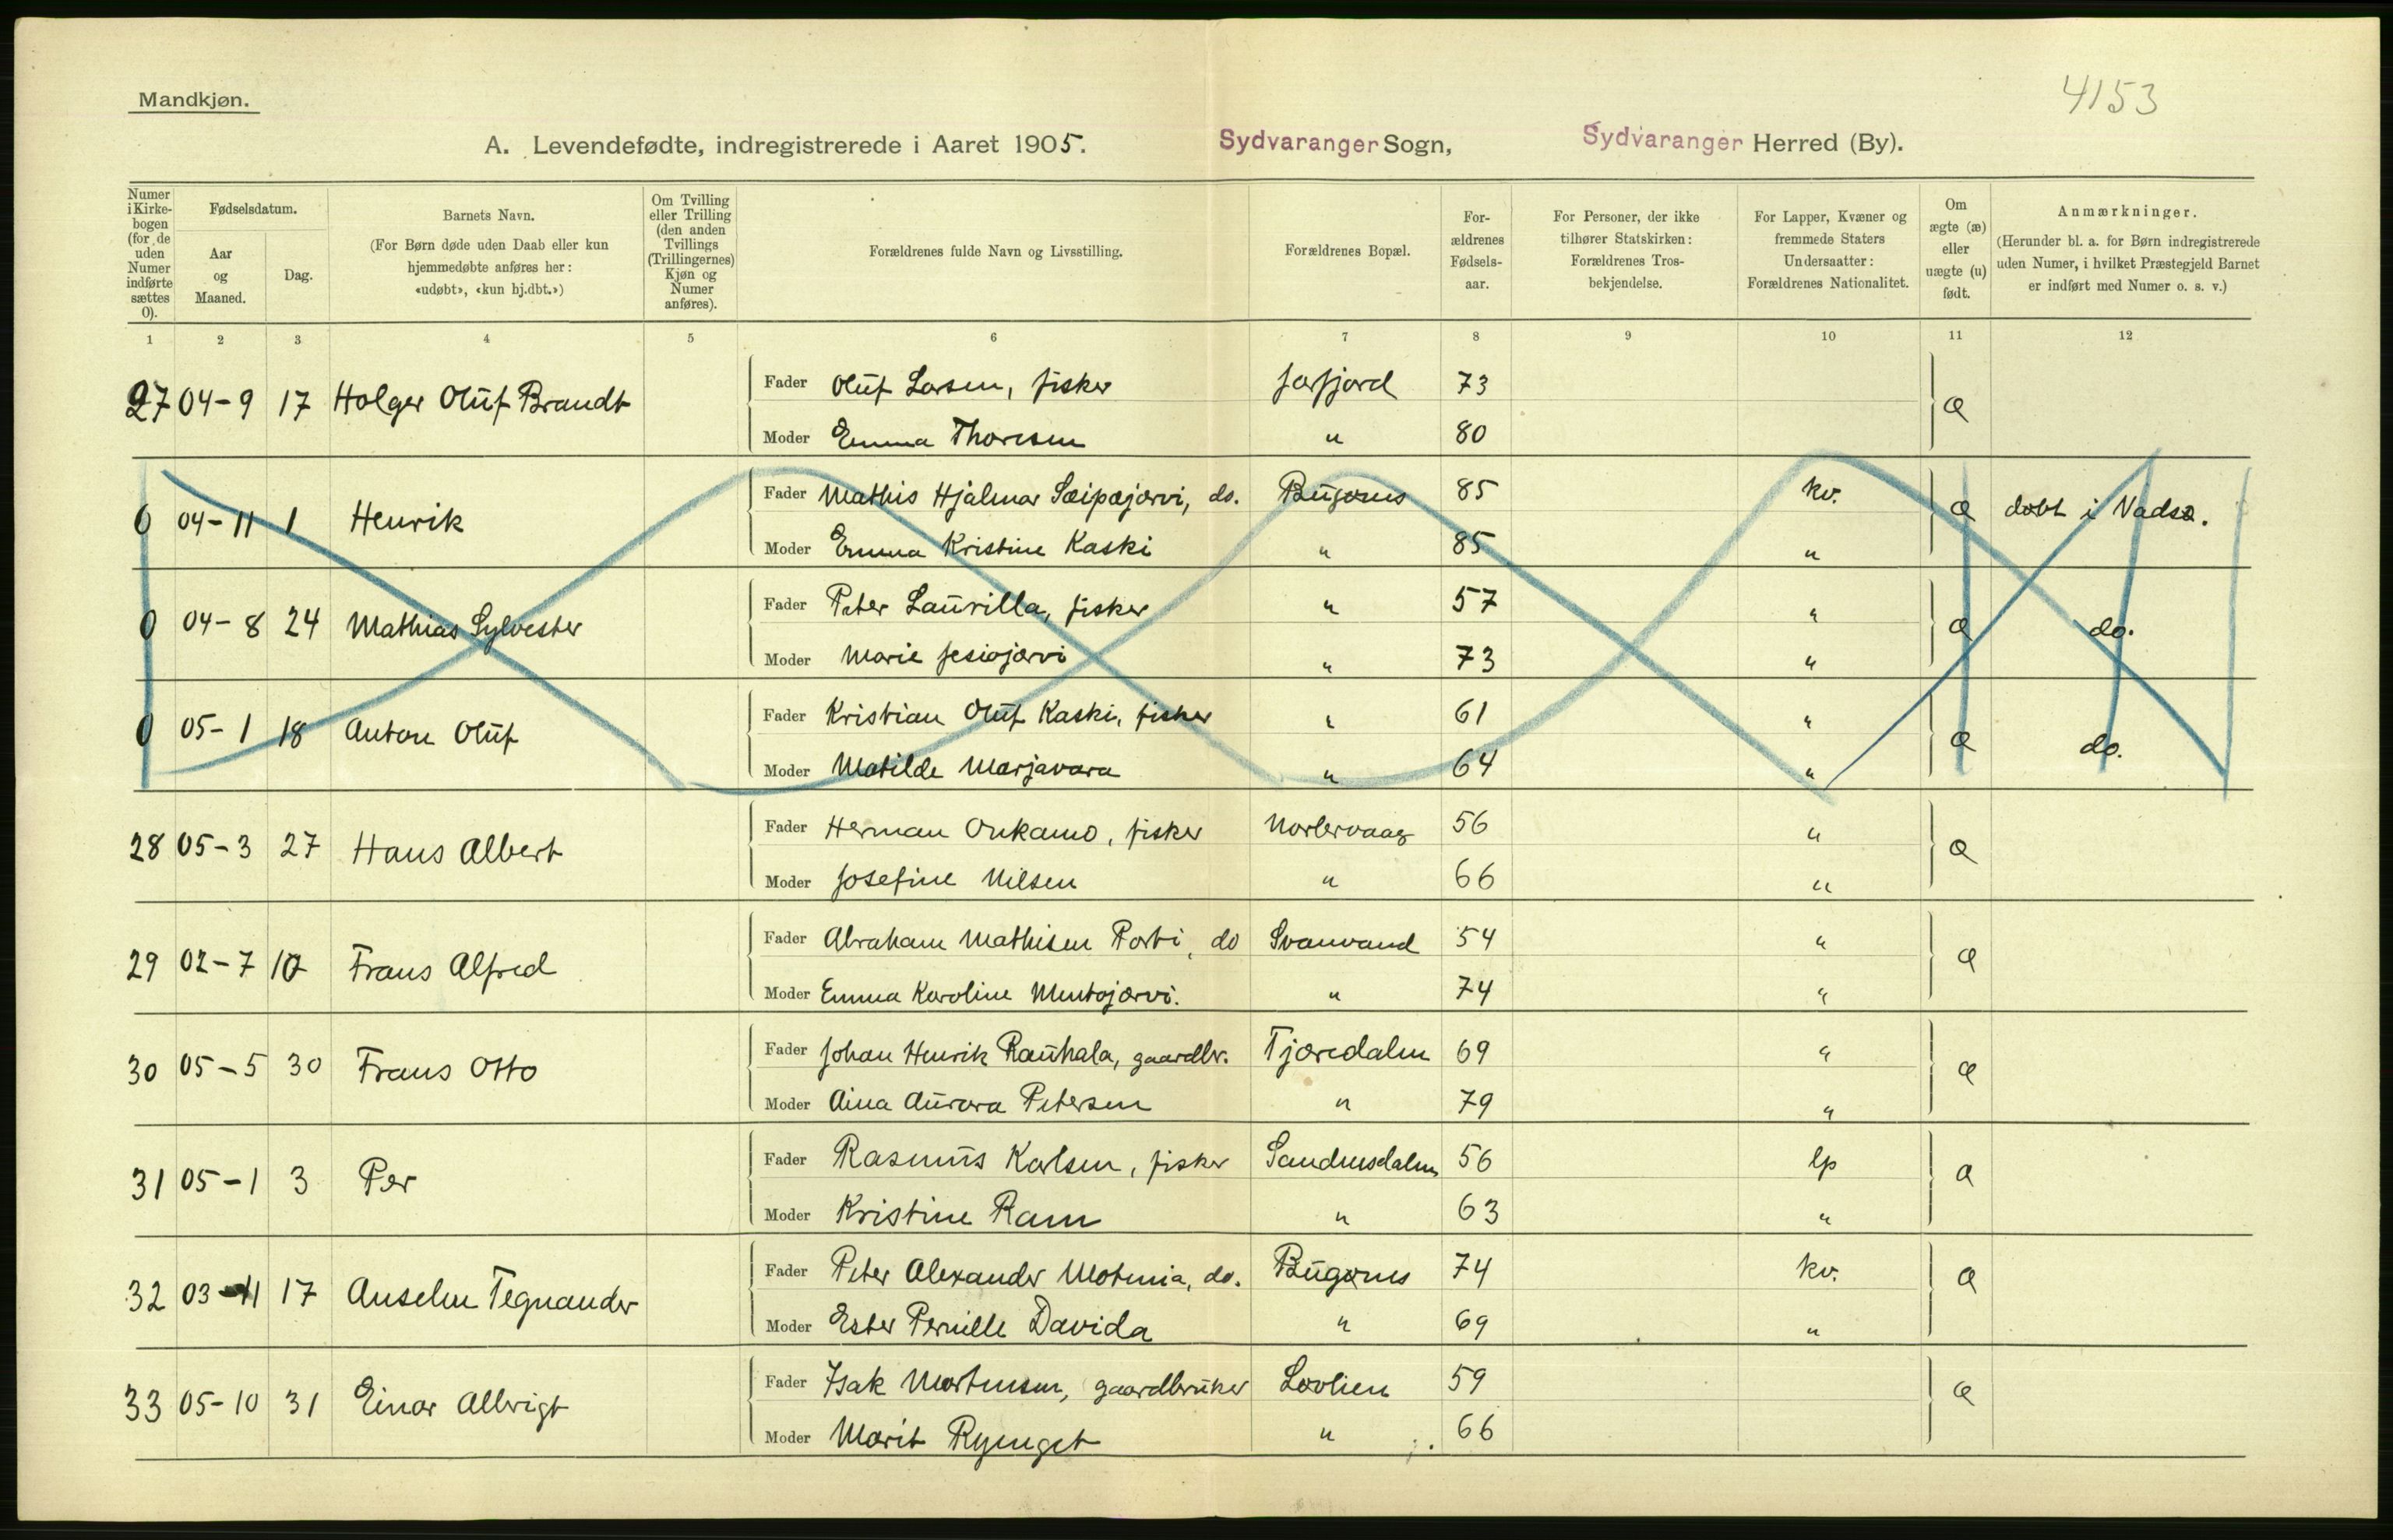 Mandkjøn.
4153
A. Levendefødte, indregistrerede i Aaret 1905. Sydvaranger Sogn, Sydvaranger Herred (By).
Numer i Kirkebogen (for de uden Numer indførte sættes 0).
Fødselsdatum.
Aar og Maaned.
Dag.
Barnets Navn.
(For Børn døde uden Daab eller kun hjemmedøbte anføres her: «udøbt», «kun hj.dbt.»)
Om Tvilling eller Trilling (den anden Tvillings (Trillingernes) Kjøn og Numer anføres).
Forældrenes fulde Navn og Livsstilling.
Forældrenes Bopæl.
Forældrenes Fødselsaar.
For Personer, der ikke tilhører Statskirken: Forældrenes Trosbekjendelse.
For Lapper, Kvæner og fremmede Staters Undersaatter: Forældrenes Nationalitet.
Om ægte (æ) eller uægte (u) født.
Anmærkninger.
(Herunder bl. a. for Børn indregistrerede uden Numer, i hvilket Præstegjeld Barnet er indført med Numer o. s. v.)
1 2 3 4 5 6 7 8 9 10 11 12
27 04-9 17 Holger Oluf Brandt Fader Oluf Larsen, fisker Jarfjord 73 æ
Moder Emma Thoresen " 80
0 04-11 1 Henrik Fader Mathis Hjalmar Sæipæjærvi, do. Bugønes 85 kv. æ døbt i Vadsø.
Moder Emma Kristine Kaski " 85 "
0 04-8 24 Mathias Sylvester Fader Peter Laurilla, fisker " 57 " æ do.
Moder Marie Jesiojærvi " 73 "
0 05-1 18 Anton Oluf Fader Kristian Oluf Kaski, fisker " 61 " æ do.
Moder Matilde Marjavara " 64 "
28 05-3 27 Hans Albert Fader Herman Onkamo, fisker 56 " æ
Moder Josefine Nilsen " 66 "
29 02-7 10 Frans Alfred Fader Abraham Mathisen Porti, do Svanvand 54 " æ
Moder Emma Karoline " 74 "
30 05-5 30 Frans Otto Fader Johan Henrik Rauhala, gaardbr. Tjæredalen 69 " æ
Moder Aina Aurora Petersen " 79 "
31 05-1 3 Per Fader Rasmus Karlsen, fisker Sandnesdalen 56 lp æ
Moder Kristine Ram " 63 "
32 03-11 17 Anselm Tegnander Fader Peter Alexander do. Bugønes 74 kv. æ
Moder Ester Pernille Davida " 69 "
33 05-10 31 Einar Albrigt Fader Isak Mortensen, gaardbruker Løvlien 59 æ
Moder Marit Ryenget " 66